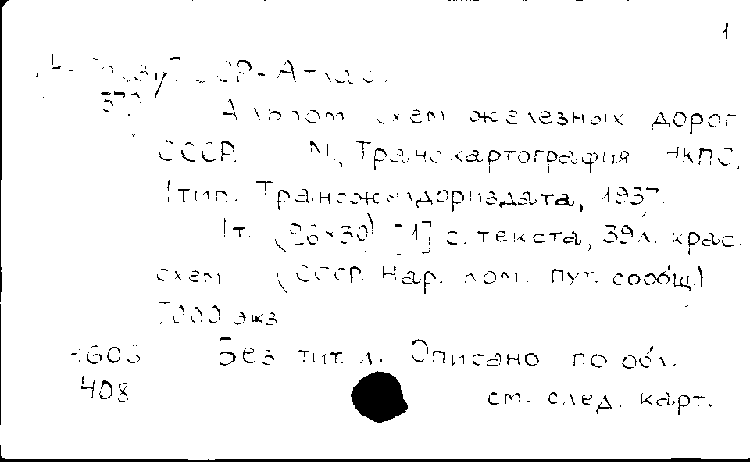 1
СССР - Атлас.
Альбом схем железных дорог
СССР. М., Транскартография НКПС,
[тип. Трансжелдориздата, 1937.
1т. (26×30) [1] с. текста, 39л. крас.
схем (СССР. Нар. ком. пут. сообщ.)
5000 экз
Без тит. л. Описано по обл.
408 см. след. карт.